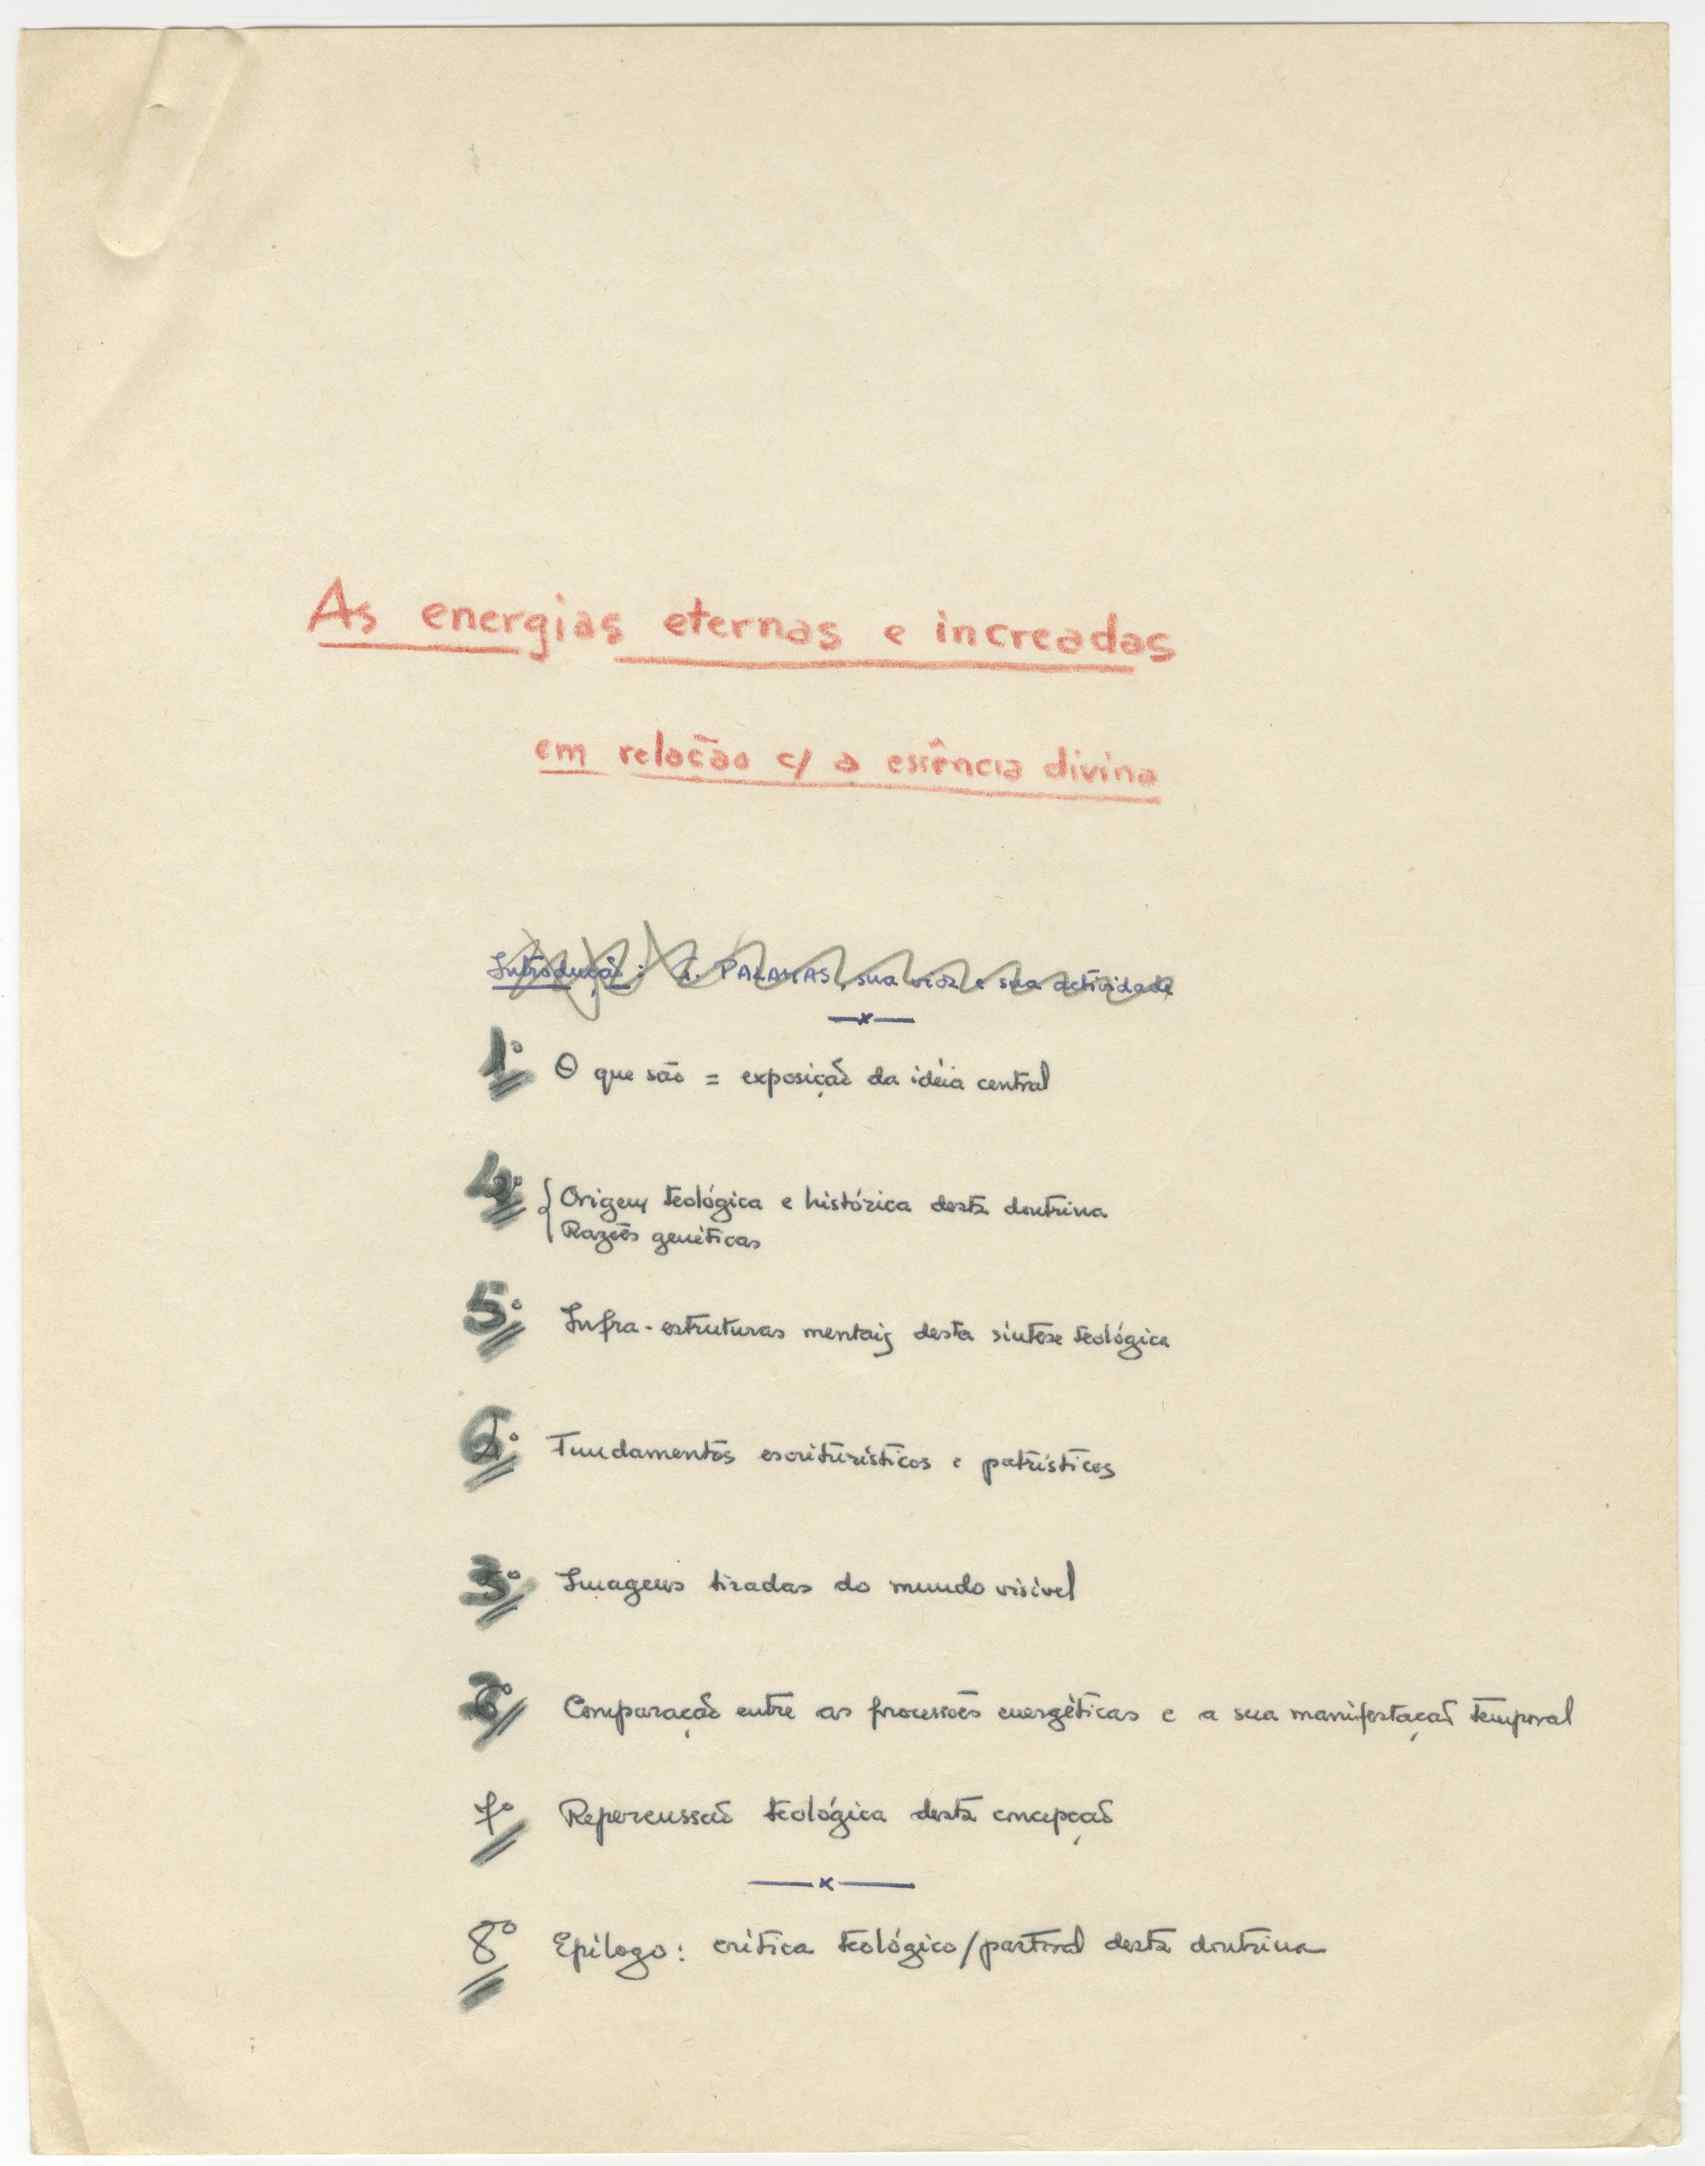 As energias eternas e increadas
em relação c/ a essência divina
Introdução: G. PALAMAS, sua vida e sua actividade
1º O que são = exposição da idéia central
4º Origem teológica e histórica desta doutrina
Razões genéticas
5º Infra-estruturas mentais desta síntese teológica
6º Fundamentos escriturísticos e patrísticos
3º Imagens tiradas do mundo visível
2º Comparação entre as processões energéticas e a sua manifestação temporal
7º Repercussão teológica desta concepção
8º Epílogo: crítica teológico/pastoral desta doutrina